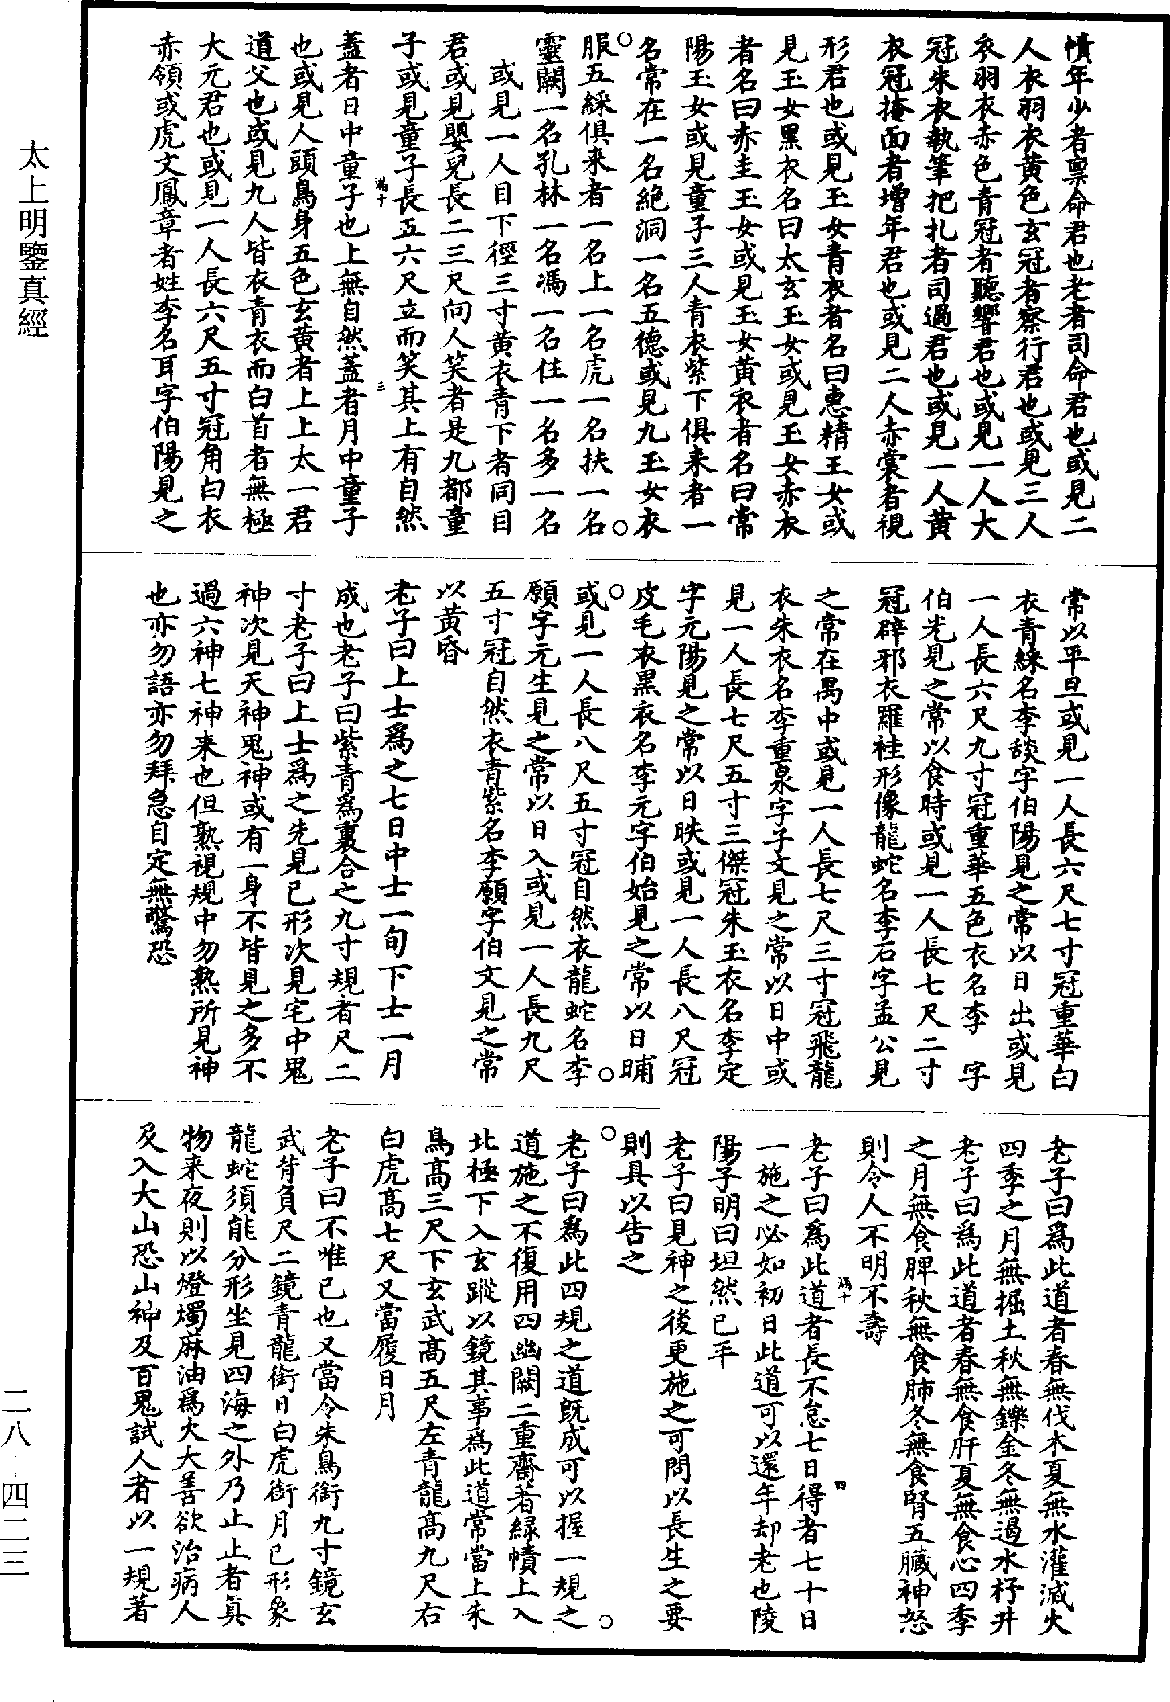 幘年少者禀命君也老者司命君也或見二
人衣羽衣黃色玄冠者察行君也或見三人
衣羽衣赤色青冠者聽響君也或見一人大
冠朱衣執筆把扎者司過君也或見一人黃
衣冠掩面者增年君也或見二人赤裳者視
形君也或見玉女青衣者名曰惠精玉女或
見玉女黑衣名曰太玄玉女或見玉女赤衣
者名曰赤圭玉女或見玉女黃衣者名曰常
陽玉女或見童子三人青衣紫下俱來者一
名常在一名絕洞一名五德或見九玉女衣
服五綵俱來者一名上一名虎一名扶一名
靈闕一名孔林一名馮一名住一名多一名
或見一人目下徑三寸黃衣青下者同目
君或見嬰兒長二三尺向人笑者是九都童
子或見童子長五六尺立而笑其上有自然
蓋者日中童子也上無自然蓋者月中童子
也或見人頭鳥身五色玄黃者上上太一君
道父也或見九人皆衣青衣而白首者無極
大元君也或見一人長六尺五寸冠角白衣
赤領或虎文鳳章者姓李名耳字伯陽見之
常以平旦或見一人長六尺七寸冠重華白
衣青綵名李談字伯陽見之常以日出或見
一人長六尺九寸冠重華五色衣名李 字
伯光見之常以食時或見一人長七尺二寸
冠辟邪衣羅袿形像龍蛇名李石字孟公見
之常在禺中或見一人長七尺三寸冠飛龍
衣朱衣名李重泉字子文見之常以日中或
見一人長七尺五寸三傑冠朱玉衣名李定
字元陽見之常以日昳或見一人長八尺冠
皮毛衣黑衣名李元字伯始見之常以日晡
或見一人長八尺五寸冠自然衣龍蛇名李
願字元生見之常以日入或見一人長九尺
五寸冠自然衣青紫名李願字伯文見之常
以黃昏
老子曰上士爲之七日中士一旬下士一月
成也老子曰紫青爲裏合之九寸規者尺二
寸老子曰上士爲之先見己形次見宅中鬼
神次見天神鬼神或有一身不皆見之多不
過六神七神來也但熟視規中勿熟所見神
也亦勿語亦勿拜急自定無驚恐
老子曰爲此道者春無伐木夏無水灌滅火
四季之月無掘土秋無鑠金冬無過水杼井
老子曰爲此道者春無食肝夏無食心四季
之月無食脾秋無食肺冬無食腎五臟神怒
則令人不明不壽
老子曰爲此道者長不怠七日得者七十日
一施之必如初日此道可以還年却老也陵
陽子明曰坦然已平
老子曰見神之後更施之可問以長生之要
則具以告之
老子曰爲此四規之道既成可以握一規之
道施之不復用四幽闕二重齋著緑幘上入
北極下入玄蹤以鏡其事爲此道常當上朱
鳥高三尺下玄武高五尺左青龍高九尺右
白虎高七尺又當履日月
老子曰不唯已也又當令朱鳥銜九寸鏡玄
武背負尺二鏡青龍銜日白虎銜月已形象
龍蛇須能分形坐見四海之外乃止止者真
物來夜則以燈燭麻油爲火大善欲治病人
及入大山恐山神及百鬼試人者以一規著
太上明鑒真經
二八 四二三